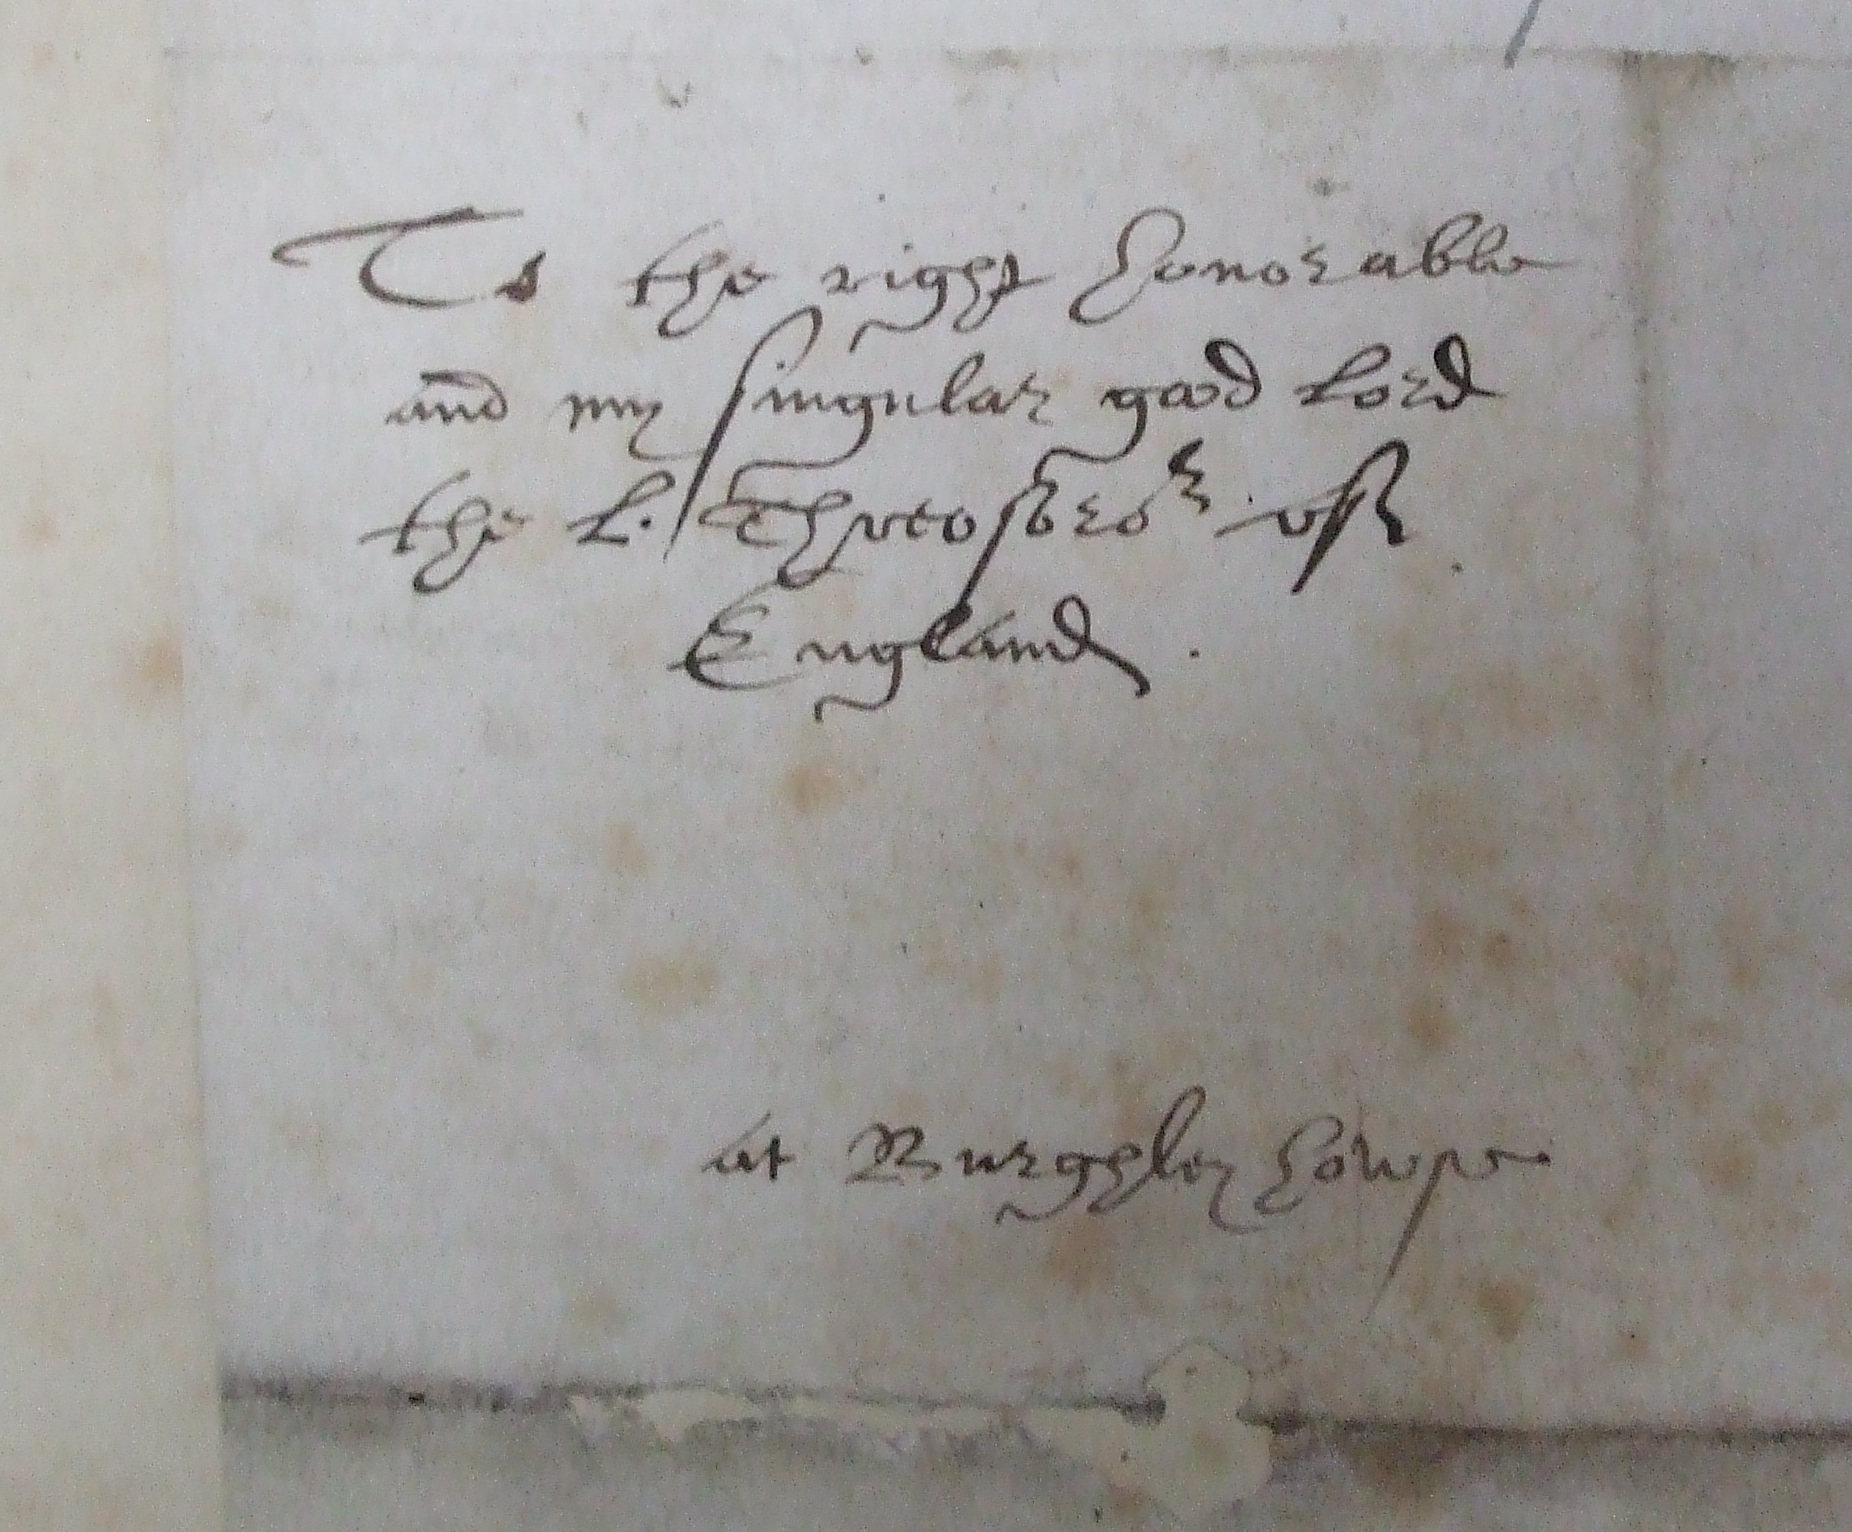 To the right honorable
and my singular good Lord
the L. Threasoror off
England.
at Burghley howse